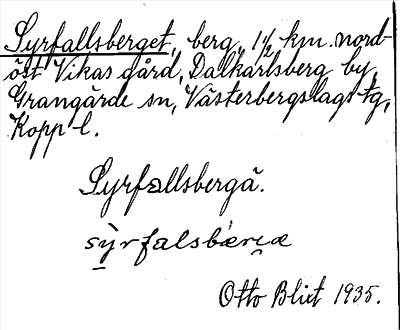 Syrfallsberget, berg, 1½ km. nord-
öst Vikas gård, Dalkarlsberg by,
Grangärde sn, Västerbergslags tg,
Kopp. l.
Syrfallsbergä.
Otto Blixt 1935.